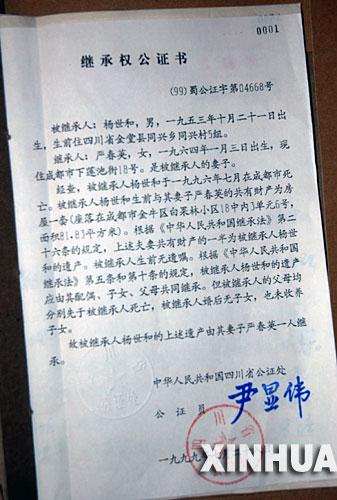 0001
继承权公证书
(99)蜀公证字第04668号
被继承人：杨世和，男，一九五三年十月二十一日出
生，生前住四川省金堂县同兴乡同兴村5组。
继承人：严春英，女，一九六四年一月三日出生，现
住成都市下莲池街18号。是被继承人的妻子。
经查，被继承人杨世和于一九九六年七月在成都市死
亡。被继承人杨世和生前与其妻子严春英的共有财产为房
屋一套（座落在成都市金牛区白果林小区18中内3单元6号，
面积81.83平方米）。根据《中华人民共和国继承法》第二
十六条的规定，上述夫妻共有财产的一半为被继承人杨世
和的遗产。被继承人生前无遗嘱。根据《中华人民共和国
继承法》第五条和第十条的规定，被继承人杨世和的遗产
应由其配偶、子女、父母共同继承。但被继承人的父母均
分别先于被继承人死亡，被继承人婚后无子女，也未收养
子女。
故被继承人杨世和的上述遗产由其妻子严春英一人继
承。
中华人民共和国四川省公证处
公证员 尹显伟
四川省
一九九九年
XINHUA